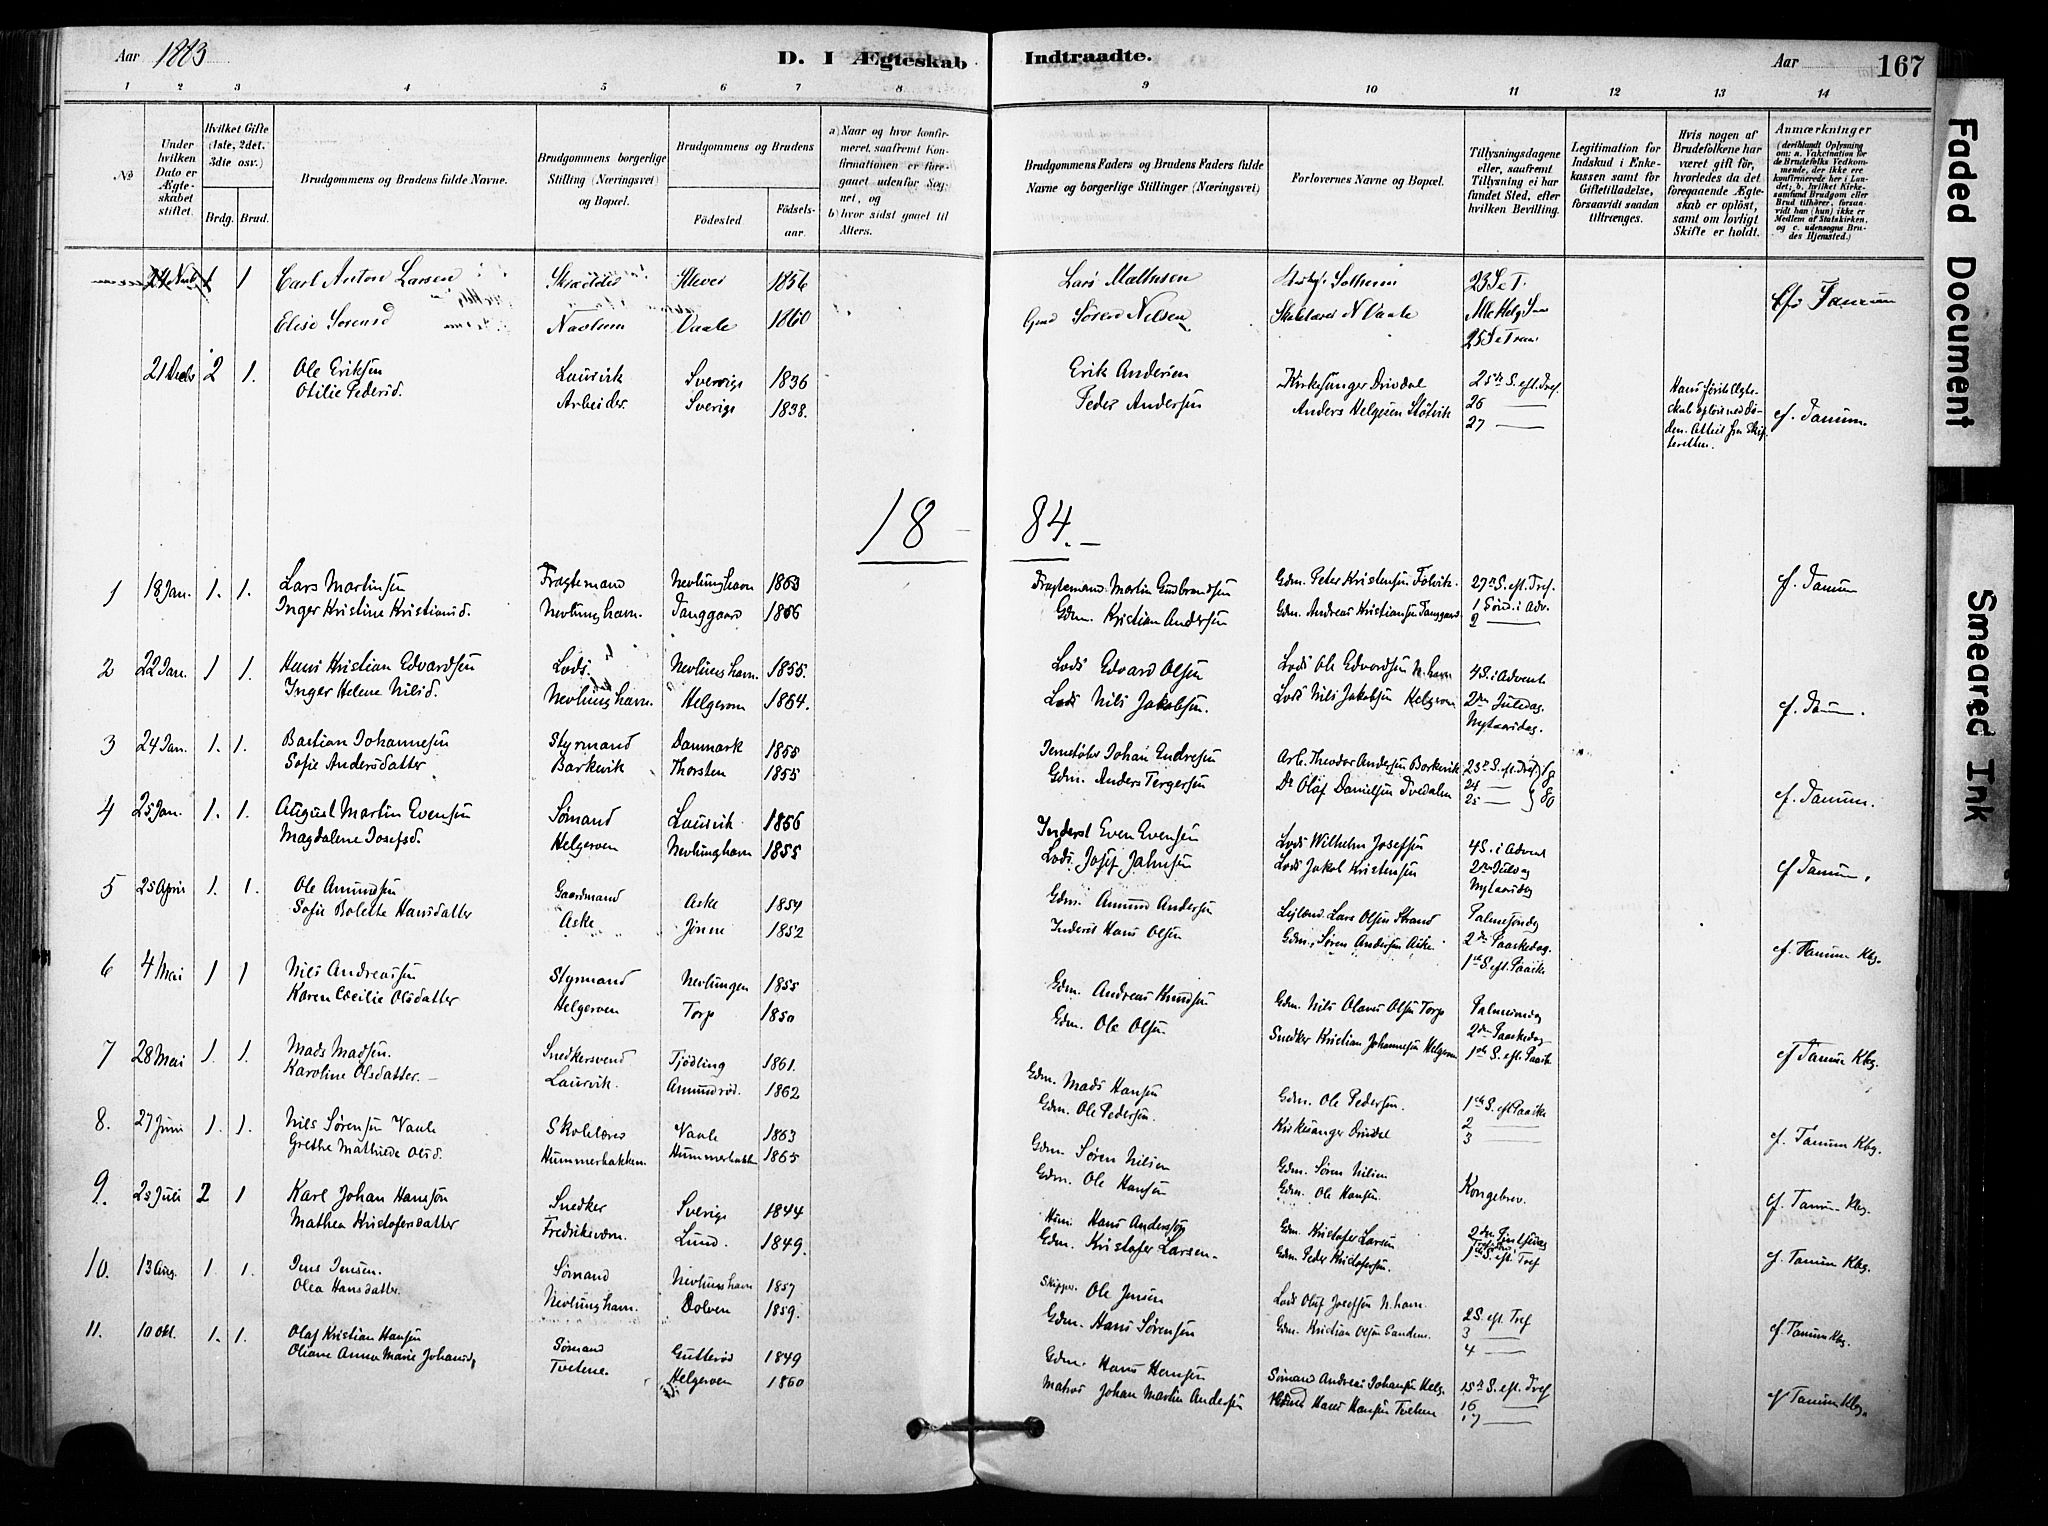 Aar 1883
D. I Ægteskab Indtraadte.
Aar 167
1 2 3 4 5 6 7 8 9 10 11 12 13 14
No
Under hvilken Dato er Ægteskabet stiftet.
Hvilket Gifte (1ste, 2det, 3die osv.)
Brdg. Brud.
Brudgommens og Brudens fulde Navne.
Brudgommens borgerlige Stilling (Næringsvei) og Bopæl.
Brudgommens og Brudens
Födested
Födsels-aar.
a) Naar og hvor konfirmeret, saafremt Konfirmationen er foregaaet udenfor Sognet, og
b) hvor sidst gaaet til Alters.
Brudgommens Faders og Brudens Faders fulde Navne og borgerlige Stillinger (Næringsvei)
Forlovernes Navne og Bopæl.
Tillysningsdagene eller, saafremt Tillysning ei har fundet Sted, efter hvilken Bevilling.
Legitimation for Indskud i Enkekassen samt for Giftetilladelse, forsaavidt saadan tiltrænges.
Hvis nogen af Brudefolkene har været gift för, hvorledes da det foregaaende Ægteskab er oplöst, samt om lovligt Skifte er holdt.
Anmærkninger (deriblandt Oplysning om: a. Vakcination for de Brudefolks Vedkommende, der ikke ere konfirmerede her i Landet; b. hvilket Kirkesamfund Brudgom eller Brud tilhörer, forsaavidt han (hun) ikke er Medlem af Statskirken, og c. udensogns Brudes Hjemsted.)
1 1 Carl Anton Larsen Skrædder 1856 Lars Mathisen 23 S e T.
Elise Sørensd Navlum Vaale 1860 Gmd Søren Nilsen Skolelærer N Vaale
25 S e Trin
21 Decbr 2 1. Ole Eriksen Laurvik Sverige 1836 Erik Andersen Kirkesanger Drivdal 25de S. eft. Tref.
Otilie Pedersd. Arbeider Sverige 1838. Peder Andersen Anders Helgesen Stølvik 26 —
27 —
Hans første Ægteskab opløst ved Døden. Attest fra Skifteretten.
cf. Tanum.
18 — 84. —
1 18 Jan. 1. 1. Lars Martinsen Fragtemand Nevlunghavn 1863 Fragtemand Martin Gudbrandsen Gdm. Peter Kristensen Folvik. 27de S. eft. Tref. cf. Tanum
Inger Kristine Kristiansd. Nevlunghavn. Tanggaard 1866 Gdm. Kristian Andersen Gdm. Andreas Kristiansen Tanggaard 1 Sønd. i Adv.
2 —
2 22 Jan. 1 1. Hans Kristian Edvardsen Lods. Nevlunghavn. 1855. Lods Edvard Olsen Lods Ole Edvardsen N.havn 4 S. i Advent
Inger Helene Nilsd. Nevlunghavn. Helgeroen 1864. Lods Nils Jakobsen. Lods Nils Jakobsen Helgeroen 2den Juledag. cf. Tanum.
Nytaarsdag.
3 24 Jan. 1. 1. Bastian Johannesen Styrmand Danmark 1855 Jernstøber Johan Endresen Arb. Theodor Andersen Barkevik 23de S. eft. Tref. 18
Sofie Andersdatter Barkevik Thorsten 1855 Gdm. Anders Tergersen Do Olaf Danielsen Tvedalen 24 — 80 cf. Tanum.
25 —
4 25 Jan. 1. 1. August Martin Evensen Sømand Laurvik 1856 Inderst Even Evensen Lods Wilhelm Josefsen 4 S. i Advent
Magdalene Josefsd. Helgeroen Nevlunghavn 1855 Lods. Josef Jahnsen Lods Jakob Kristensen 2den Juledag cf Tanum.
Nytaarsdag
5 25 April 1. 1. Ole Amundsen Gaardmand Aske 1854 Gdm. Amund Andersen Leilænd. Lars Olsen Strand Palmesøndag
Sofie Bolette Hansdatter Aske Jønne 1852 Inderst Hans Olsen Gdm. Søren Andersen Aske. 2den Paaskedag. cf. Tanum Kbg.
1ste S. eft. Paaske
6 4 Mai 1 1 Nils Andreassen Styrmand Nevlungen 1855 Gdm. Andreas Knudsen Gdm. Nils Olaves Olsen Torp Palmesøndag
Karen Cæcilie Olsdatter Helgeroen Torp 1850 Gdm. Ole Olsen Snedker Kristian Johannesen Helgeroen 2den Paaskedag
1ste S. eft. Paaske cf Tanum Kbg.
7 28 Mai 1. 1. Mads Madsen. Snedkersvend Tjödling 1861. Gdm. Mads Hansen Gdm. Ole Pedersen. 1ste S. eft Paaske
Karoline Olsdatter. Laurvik. Amundrød. 1862 Gdm. Ole Pedersen. Kirkesanger Drivdal 2 —
3 — cf. Tanum Kbg.
8. 27 Juni 1. 1. Nils Sørensen Vaale Skolelærer Vaale 1863 Gdm. Søren Nilsen Gdm. Søren Nilsen Kongebrev.
Grethe Mathilde Olsd. Hummerbakken. Hummerbakken 1865 Gdm. Ole Hansen Gdm. Ole Hansen. cf. Tanum Kbg.
9. 25 Juli 2 1 Karl Johan Hansson Snedker Sverige 1844 Hans Andersson Gdm. Kristofer Larsen 2den Pintsedag
Mathea Kristofersdatter Fredriksværn. Lund. 1849. Gdm. Kristofer Larsen. Gdm. Peder Kristofersen. 1ste S. eft. Tref cf. Tanum Kbg.
10. 13 Aug. 1. 1. Jens Jensen. Sømand Nevlunghavn 1857 Skipper Ole Jensen Lods Oluf Josefsen N.havn. 2 S. eft. Tref
Olea Hansdatter. Nevlunghavn. Dolven 1859. Gdm. Hans Sørensen Gdm. Kristian Olsen Sanden. 3 — cf. Tanum Kbg.
4 —
11. 10 Okt. 1. 1. Olaf Kristian Hansen Sømand Gutterød 1849 Gdm. Hans Hansen Sømand Andreas Johansen Helg. 15de S. eft. Tref
Oliane Anna Marie Johansd. Tvetene. Helgeroen 1860 Matros Johan Martin Andersen Hans Hansen Tveten 16 — cf Tanum Kbg.
17 —
Faded Document
Smeared Ink